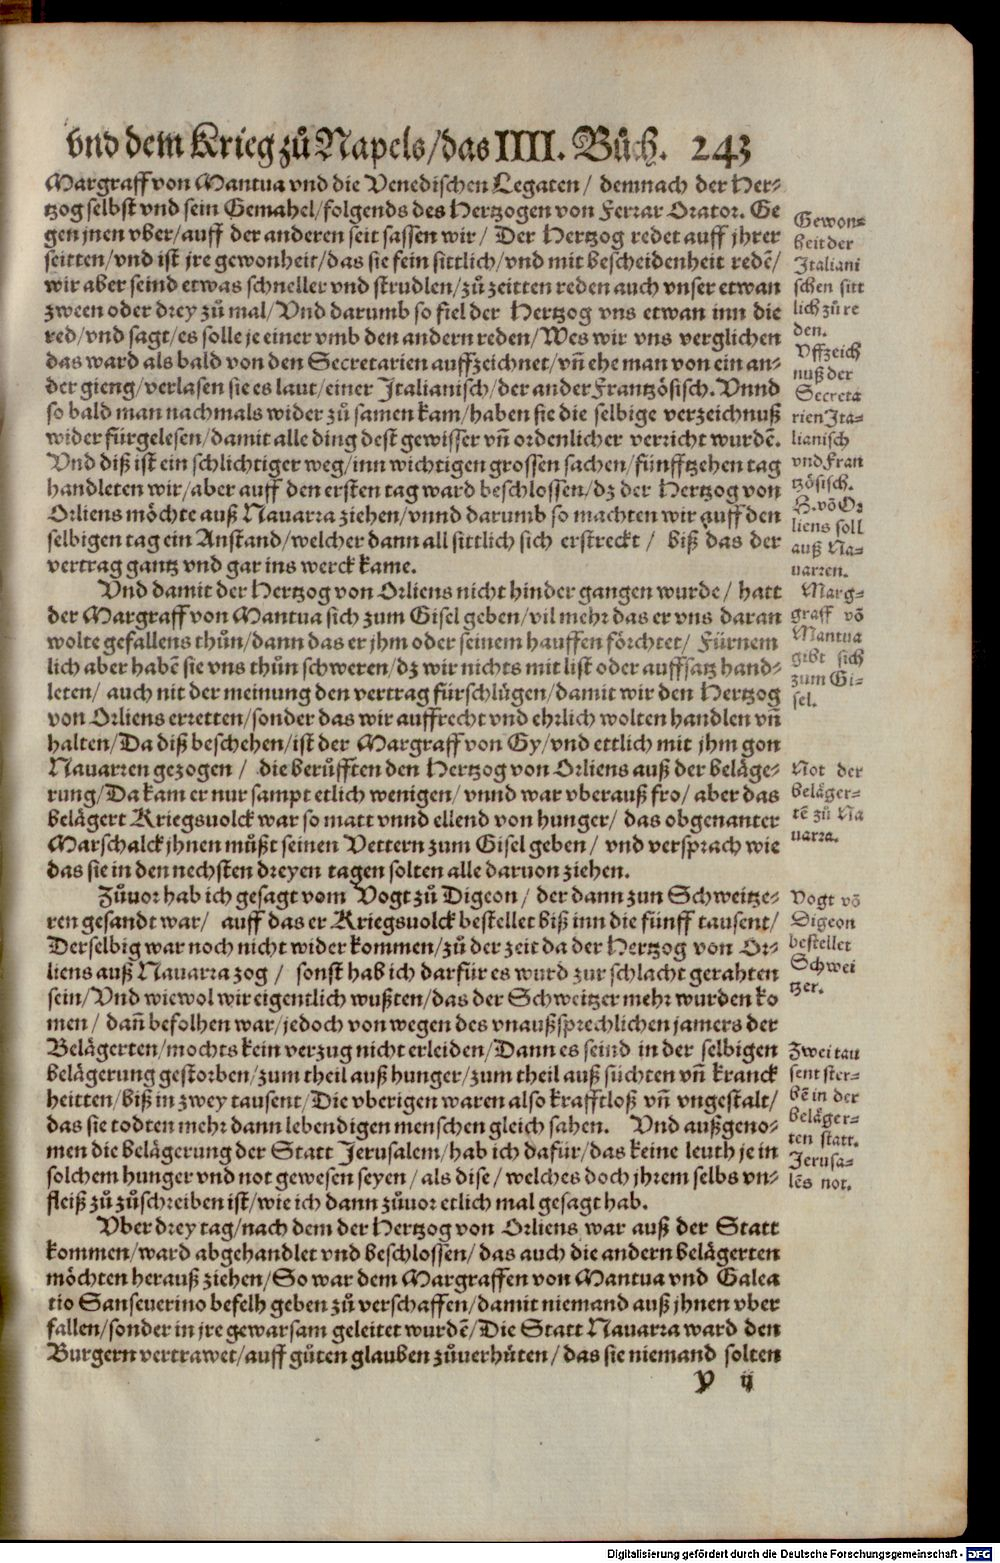 vnd dem Krieg zů Napels/das IIII. Bůch. 243
Margraff von Mantua vnd die Venedischen Legaten/ demnach der Her⸗
tzog selbst vnd sein Gemahel/folgends des Hertzogen von Ferrar Orator. Ge
gen jnen vber/auff der anderen seit sassen wir/ Der Hertzog redet auff jhrer
seitten/vnd ist jre gewonheit/das sie fein sittlich/vnd mit bescheidenheit redẽ/
wir aber seind etwas schneller vnd strudlen/zů zeitten reden auch vnser etwan
zween oder drey zů mal/Vnd darumb so fiel der Hertzog vns etwan inn die
red/vnd sagt/es solle je einer vmb den andern reden/Wes wir vns verglichen
das ward als bald von den Secretarien auffzeichnet/vñ ehe man von ein an⸗
der gieng/verlasen sie es laut/einer Italianisch/der ander Frantzösisch. Vnnd
so bald man nachmals wider zů samen kam/haben sie die selbige verzeichnuß
wider fürgelesen/damit alle ding dest gewisser vñ ordenlicher verricht wurdẽ.
Vnd diß ist ein schlichtiger weg/inn wichtigen grossen sachen/fünfftzehen tag
handleten wir/aber auff den ersten tag ward beschlossen/dz der Hertzog von
Orliens möchte auß Nauarra ziehen/vnnd darumb so machten wir auff den
selbigen tag ein Anstand/welcher dann all sittlich sich erstreckt/ biß das der
vertrag gantz vnd gar ins werck kame.
Vnd damit der Hertzog von Orliens nicht hinder gangen wurde/ hatt
der Margraff von Mantua sich zum Gisel geben/vil mehr das er vns daran
wolte gefallens thůn/dann das er jhm oder seinem hauffen förchtet/ Fürnem
lich aber habẽ sie vns thůn schweren/dz wir nichts mit list oder auffsatz hand⸗
leten/ auch nit der meinung den vertrag fürschlügen/damit wir den Hertzog
von Orliens erretten/sonder das wir auffrecht vnd ehrlich wolten handlen vñ
halten/Da diß beschehen/ist der Margraff von Gy/vnd ettlich mit jhm gon
Nauarren gezogen/ die berüfften den Hertzog von Orliens auß der beläge⸗
rung/Da kam er nur sampt etlich wenigen/vnnd war vberauß fro/ aber das
belägert Kriegsuolck war so matt vnnd ellend von hunger/ das obgenanter
Marschalck jhnen müßt seinen Vettern zum Gisel geben/ vnd versprach wie
das sie in den nechsten dreyen tagen solten alle daruon ziehen.
Zůuor hab ich gesagt vom Vogt zů Digeon/ der dann zun Schweitze⸗
ren gesandt war/ auff das er Kriegsuolck bestellet biß inn die fünff tausent/
Derselbig war noch nicht wider kommen/zů der zeit da der Hertzog von Or⸗
liens auß Nauarra zog/ sonst hab ich darfür es wurd zur schlacht gerahten
sein/Vnd wiewol wir eigentlich wußten/das der Schweitzer mehr wurden ko
men/ dañ befolhen war/jedoch von wegen des vnaußsprechlichen jamers der
Belägerten/mochts kein verzug nicht erleiden/Dann es seind in der selbigen
belägerung gestorben/zum theil auß hunger/zum theil auß süchten vñ kranck
heitten/biß in zwey tausent/Die vberigen waren also krafftloß vñ vngestalt/
das sie todten mehr dann lebendigen menschen gleich sahen. Vnd außgeno⸗
men die belägerung der Statt Jerusalem/hab ich dafür/das keine leuth je in
solchem hunger vnd not gewesen seyen/als dise/welches doch jhrem selbs vn⸗
fleiß zů zůschreiben ist/wie ich dann zůuor etlich mal gesagt hab.
Vber drey tag/nach dem der Hertzog von Orliens war auß der Statt
kommen/ward abgehandlet vnd beschlossen/das auch die andern belägerten
möchten herauß ziehen/So war dem Margraffen von Mantua vnd Galea
tio Sanseuerino befelh geben zů verschaffen/damit niemand auß jhnen vber
fallen/sonder in jre gewarsam geleitet wurdẽ/Die Statt Nauarra ward den
Burgern vertrawet/auff gůten glauben zůuerhüten/das sie niemand solten
Y ij
Gewon⸗
heit der
Italiani
schen sitt
lich zů re
den.
Vffzeich
nuß der
Secreta
rien Ita⸗
lianisch
vnd Fran
tzösisch.
H. võ Or
liens soll
auß Na⸗
uarren.
Marg⸗
graff võ
Mantua
gibt sich
zum Gi⸗
sel.
Not der
beläger⸗
tẽ zů Na
uarra.
Vogt võ
Digeon
bestellet
Schwei
tzer.
Zwei tau
sent ster⸗
bẽ in der
beläger⸗
ten statt.
Jerusa⸗
lẽs not.
Digitalisierung gefördert durch die Deutsche Forschungsgemeinschaft - DFG